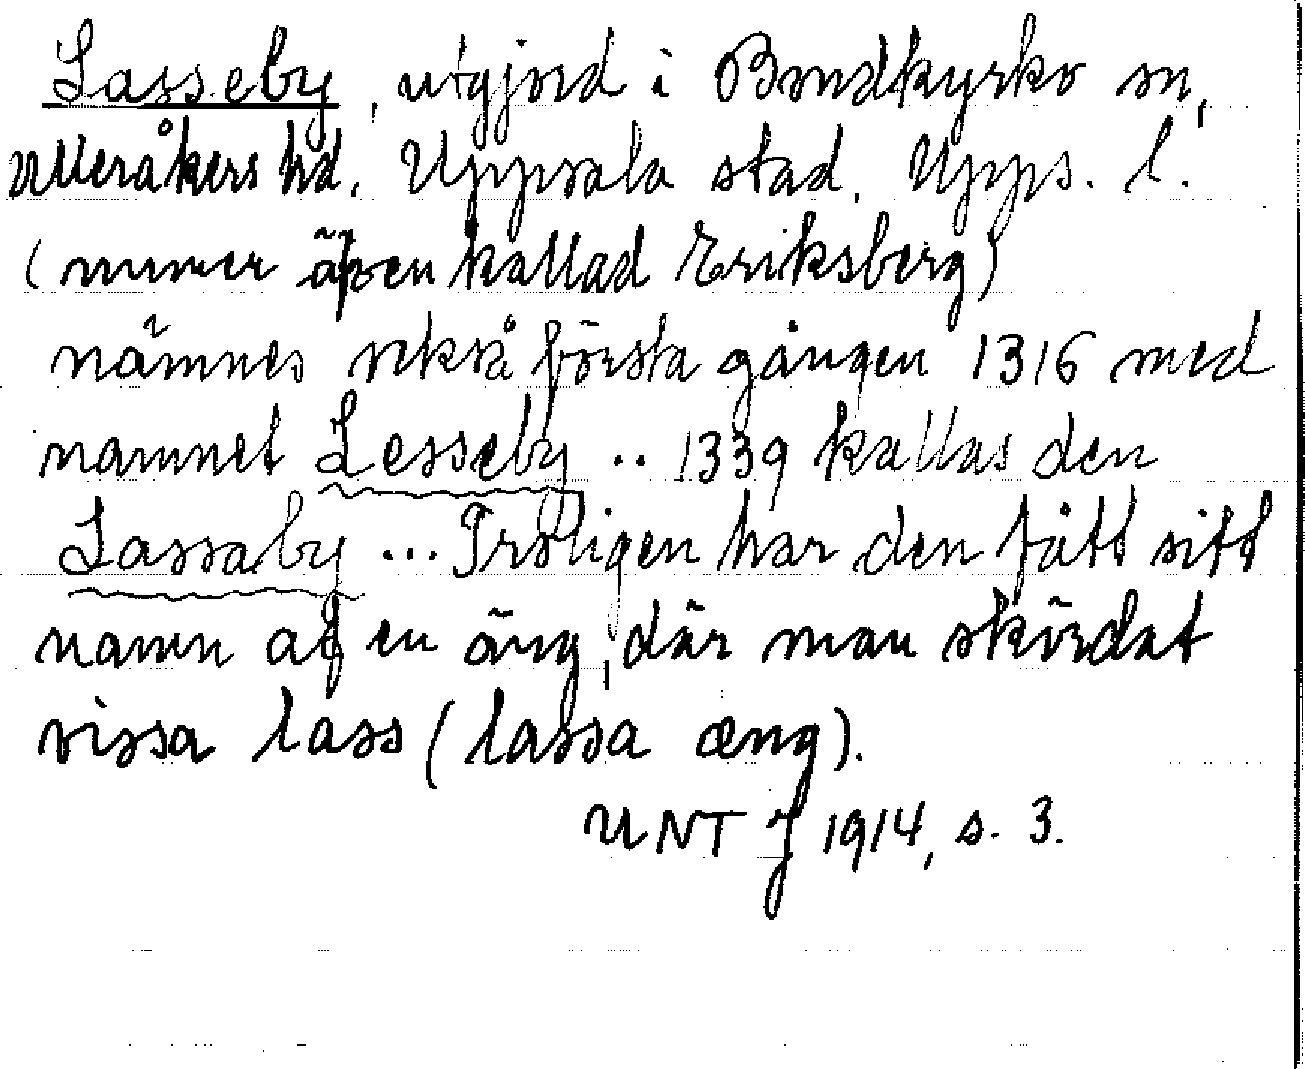 Lasseby, utgjord i Bondkyrko sn,
Ulleråkers hd. Uppsala stad. Upps. l.
(numer äfven kallad Eriksberg)
nämnes också första gången 1316 med
namnet Lesseby .. 1339 kallas den
Lassaby ... Troligen har den fått sitt
namn af en äng, där man skördat
vissa lass (lassa æng).
UNT J 1914, s. 3.